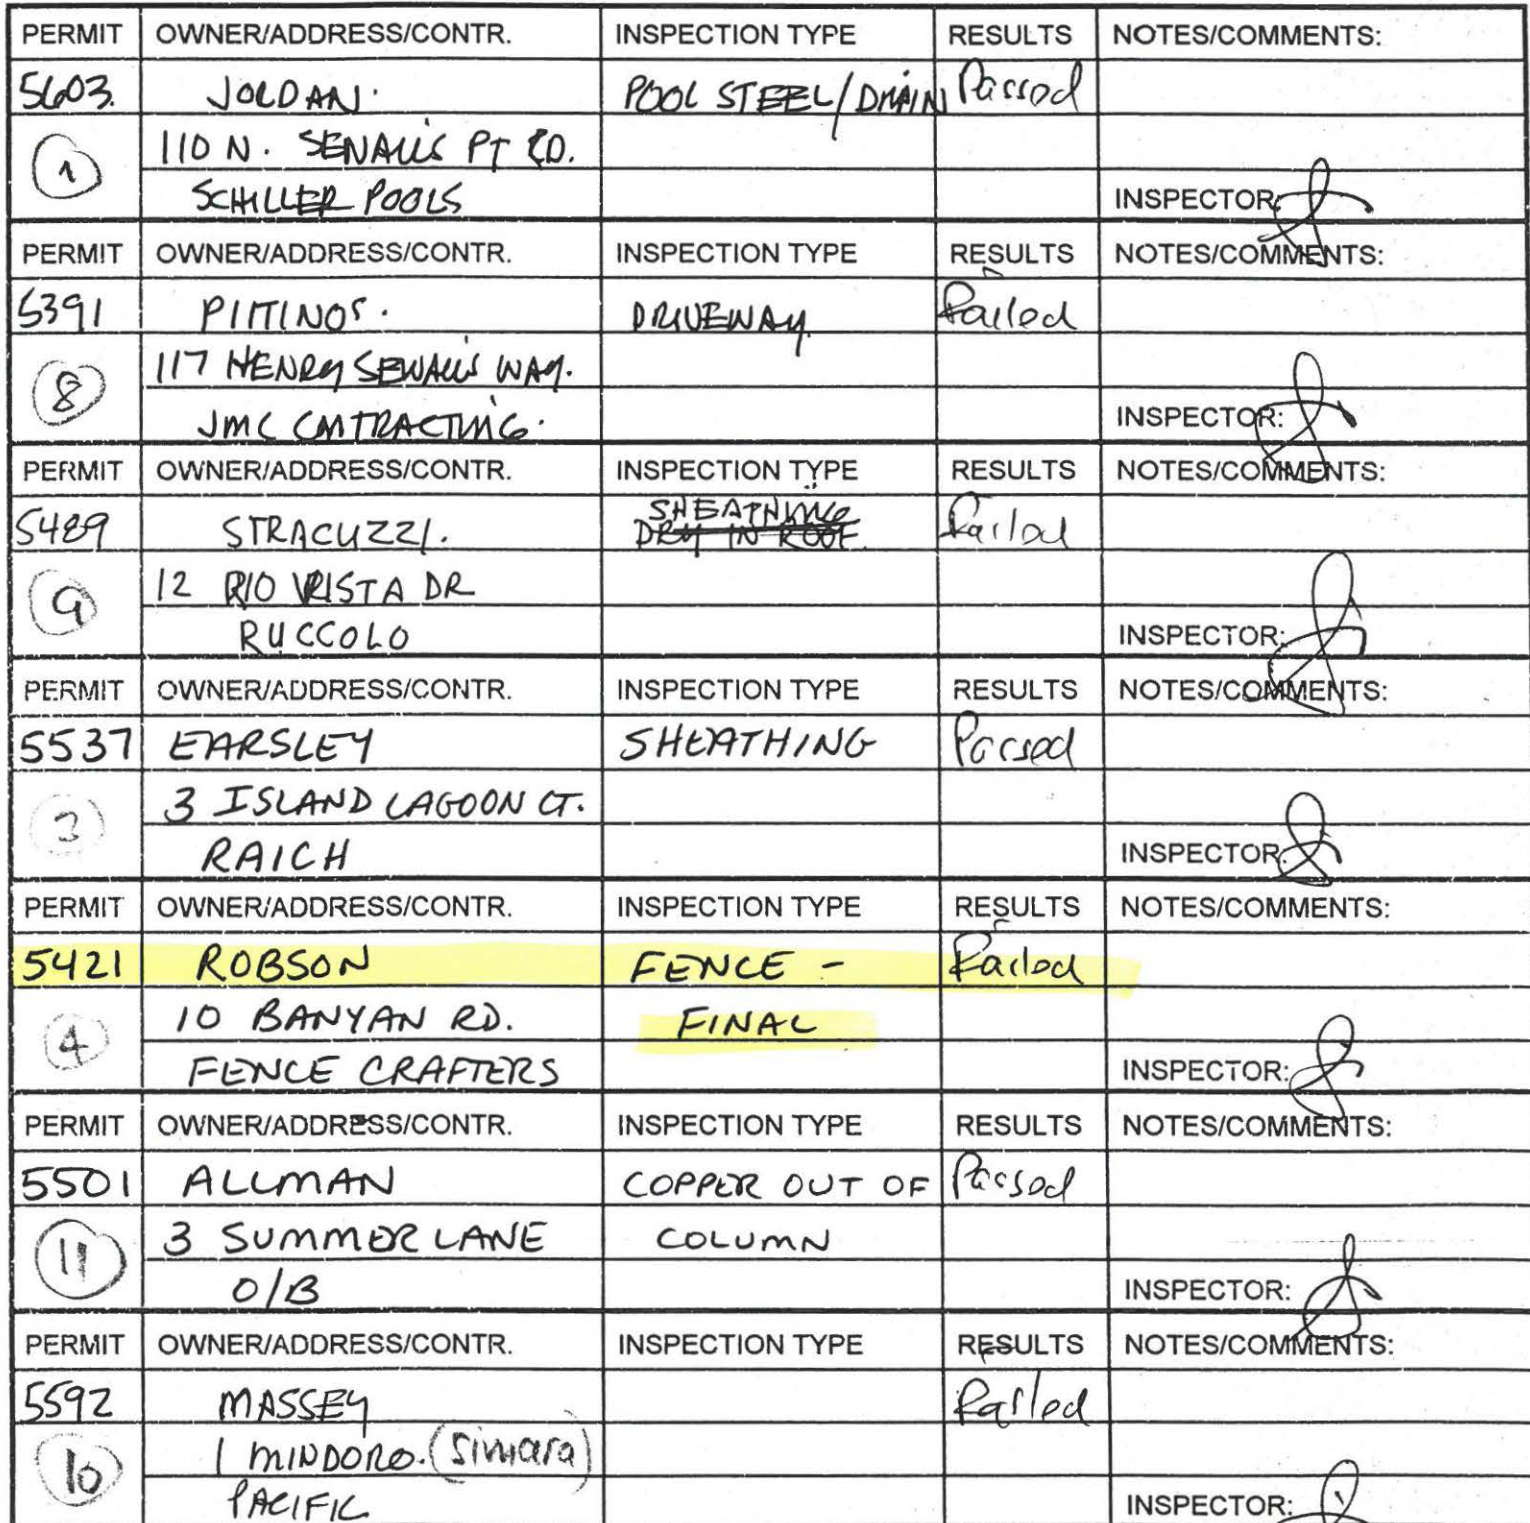 PERMIT OWNER/ADDRESS/CONTR. INSPECTION TYPE RESULTS NOTES/COMMENTS:
5603. JORDAN. POOL STEEL/DRAIN Passed
1 110 N. SEWALL'S PT RD.
SCHILLER POOLS INSPECTOR:
PERMIT OWNER/ADDRESS/CONTR. INSPECTION TYPE RESULTS NOTES/COMMENTS:
5391 PITTINOS. DRIVEWAY Failed
8 117 HENRY SEWALL'S WAY.
JMC CONTRACTING. INSPECTOR:
PERMIT OWNER/ADDRESS/CONTR. INSPECTION TYPE RESULTS NOTES/COMMENTS:
SHEATHING
5489 STRACUZZI. DRY IN ROOF. Failed
9 12 RIO VISTA DR
RUCCOLO INSPECTOR:
PERMIT OWNER/ADDRESS/CONTR. INSPECTION TYPE RESULTS NOTES/COMMENTS:
5537 EARSLEY SHEATHING Passed
3 3 ISLAND LAGOON CT.
RAICH INSPECTOR:
PERMIT OWNER/ADDRESS/CONTR. INSPECTION TYPE RESULTS NOTES/COMMENTS:
5421 ROBSON FENCE - Failed
4 10 BANYAN RD. FINAL
FENCE CRAFTERS INSPECTOR:
PERMIT OWNER/ADDRESS/CONTR. INSPECTION TYPE RESULTS NOTES/COMMENTS:
5501 ALLMAN COPPER OUT OF Passed
11 3 SUMMER LANE COLUMN
O/B INSPECTOR:
PERMIT OWNER/ADDRESS/CONTR. INSPECTION TYPE RESULTS NOTES/COMMENTS:
5592 MASSEY Failed
10 1 MINDORO. (Simara)
PACIFIC INSPECTOR: